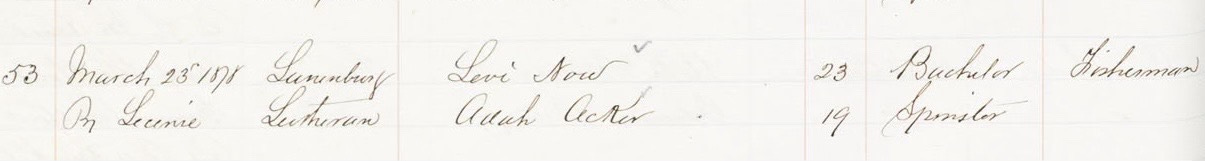 53 March 23rd 1878 Lunenburg Levi Now 23 Bachelor Fisherman
By Licence Lutheran Adah Acker 19 Spinster